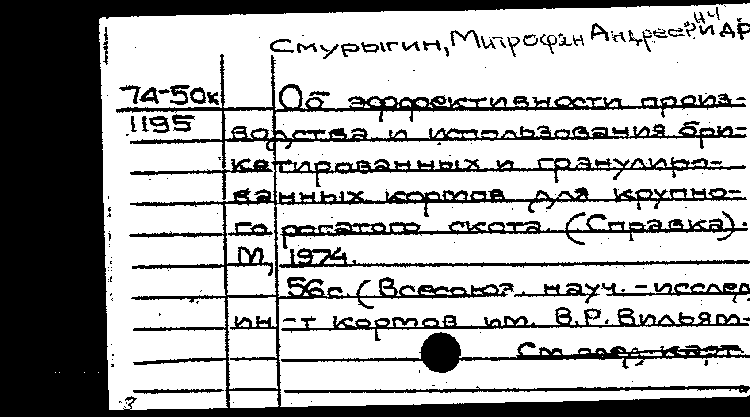 Смурыгин, Митрофан Андреевич и др
74-50к Об эффективности произ-
1195 водства и использования бри-
кетированных и гранулиро-
ванных кормов для крупно-
го рогатого скота. (Справка).
М, 1974.
56с. (Всесоюз. науч.-исслед
ин-т кормов им. В.Р. Вильям-
См след карт
3